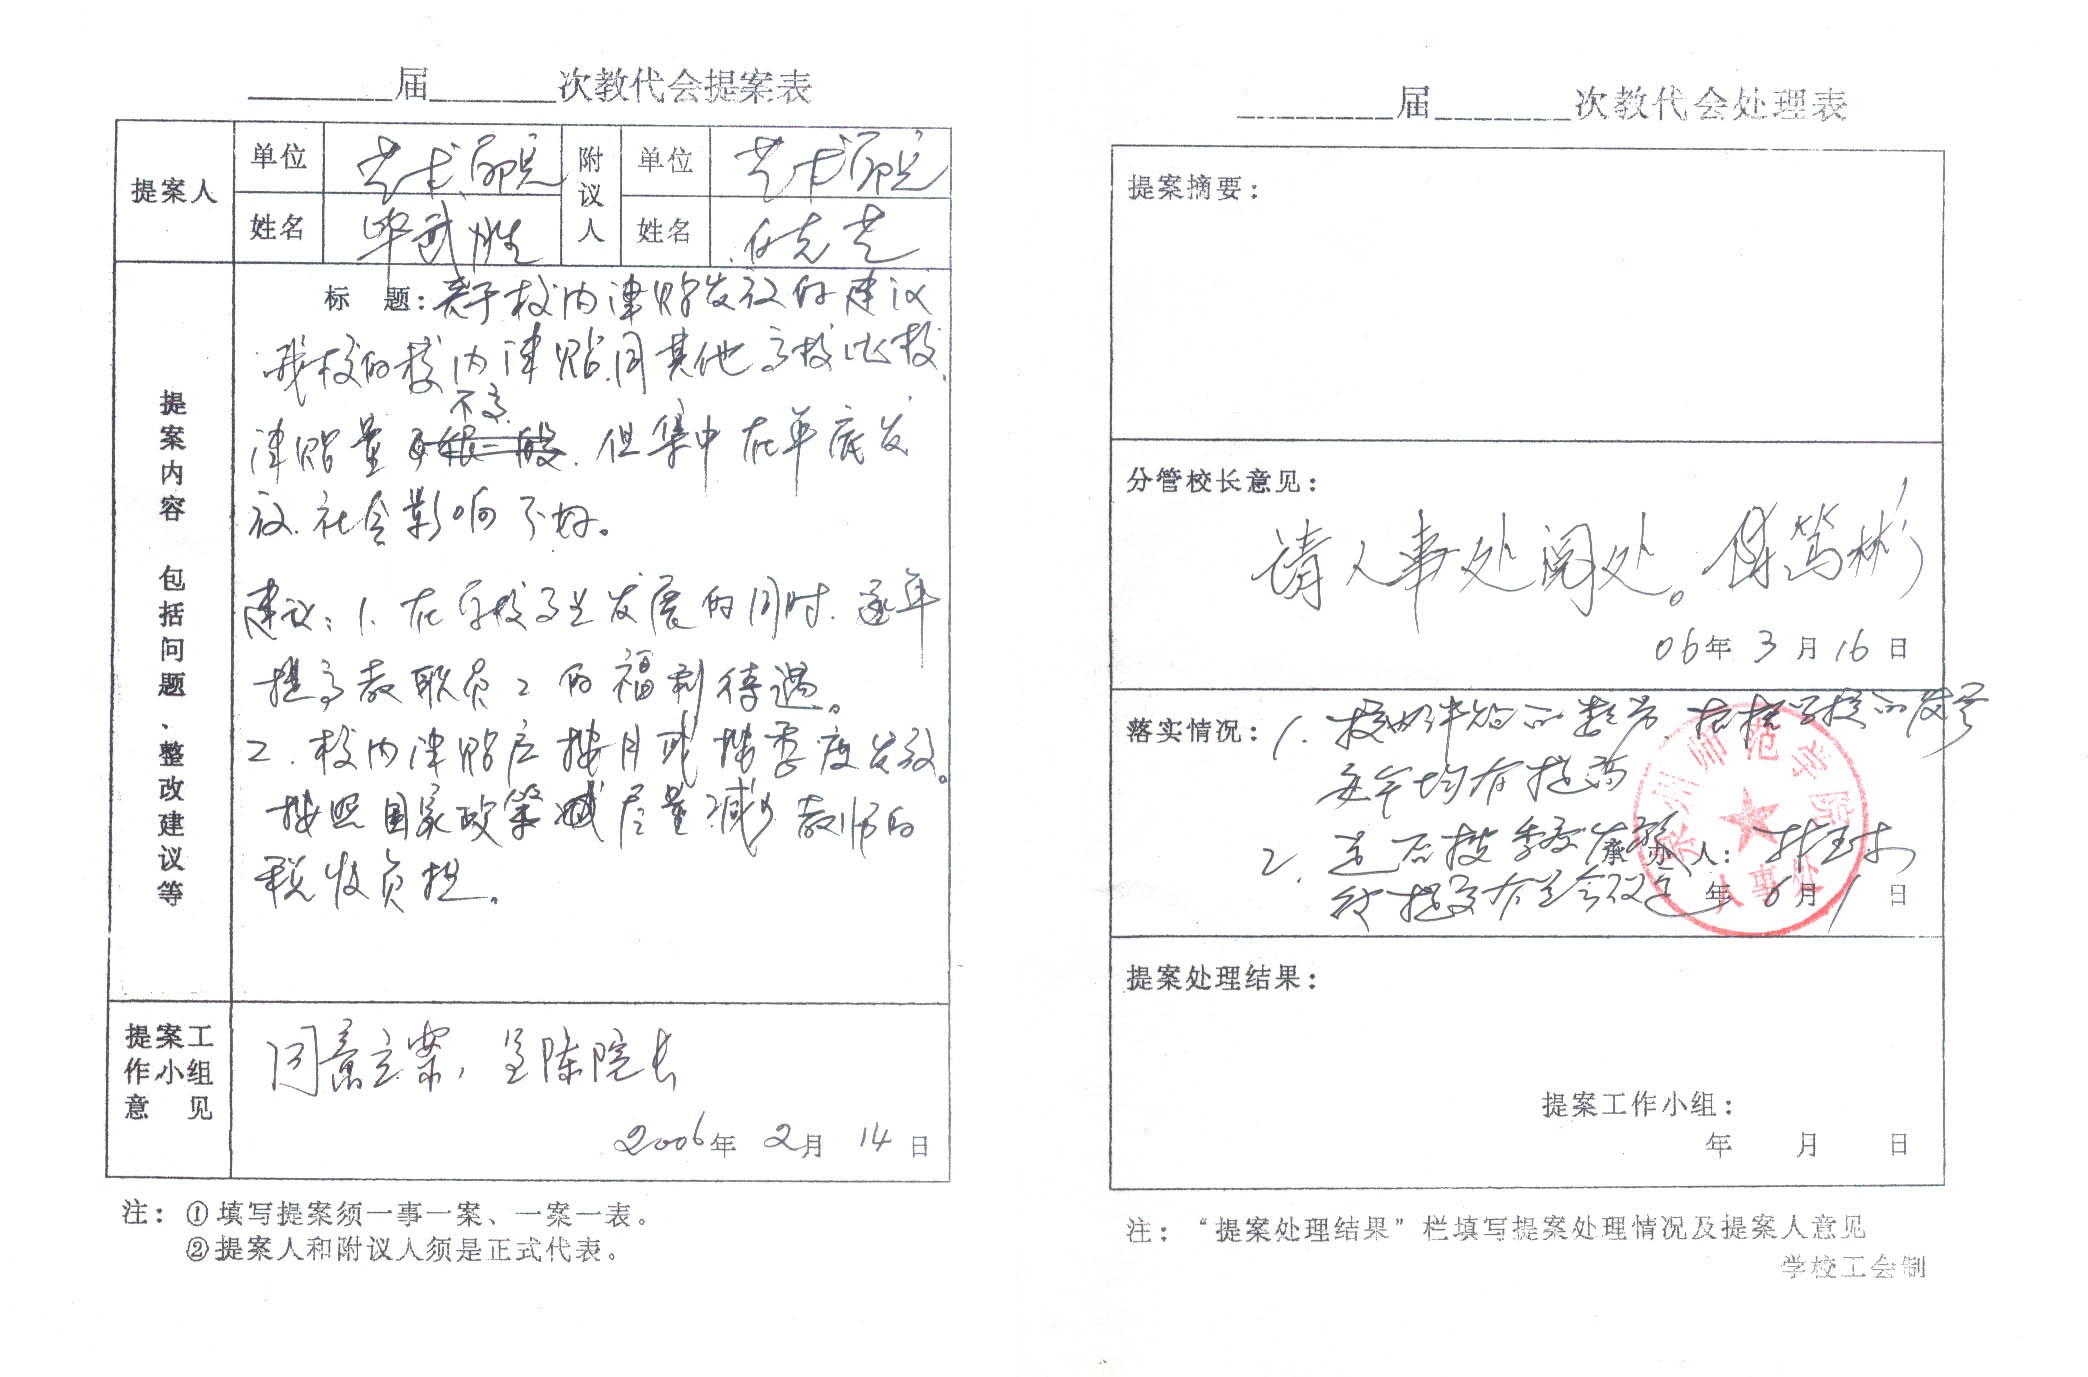 届 次教代会提案表
提案人 单位 艺术学院 附议人 单位 艺术学院
姓名 毕武胜 姓名 任克芝
提案内容 包括问题、整改建议等
标 题：关于校内津贴发放的建议
我校的校内津贴同其他高校比较,
不高
津贴量 但集中在年底发
放.社会影响不好。
建议：1.在学校高兴发展的同时.逐年
提高教职员工的福利待遇。
2.校内津贴应按月或按季度发放。
按照国家政策 尽量减少教师的
税收负担。
提案工作小组意见
同意立案，呈陈院长
2006年 2月 14日
注：①填写提案须一事一案、一案一表。
②提案人和附议人须是正式代表。
届 次教代会处理表
提案摘要：
分管校长意见：
请人事处阅处。陈笃彬
06年 3月 16日
落实情况：1.校内津贴的 学校的发展
每年均有提高
2. 是否按季度发放
承办人：
待提交 会议定 年 6月 1日
泉州师范学院
人事处
提案处理结果：
提案工作小组：
年 月 日
注：“提案处理结果”栏填写提案处理情况及提案人意见
学校工会制